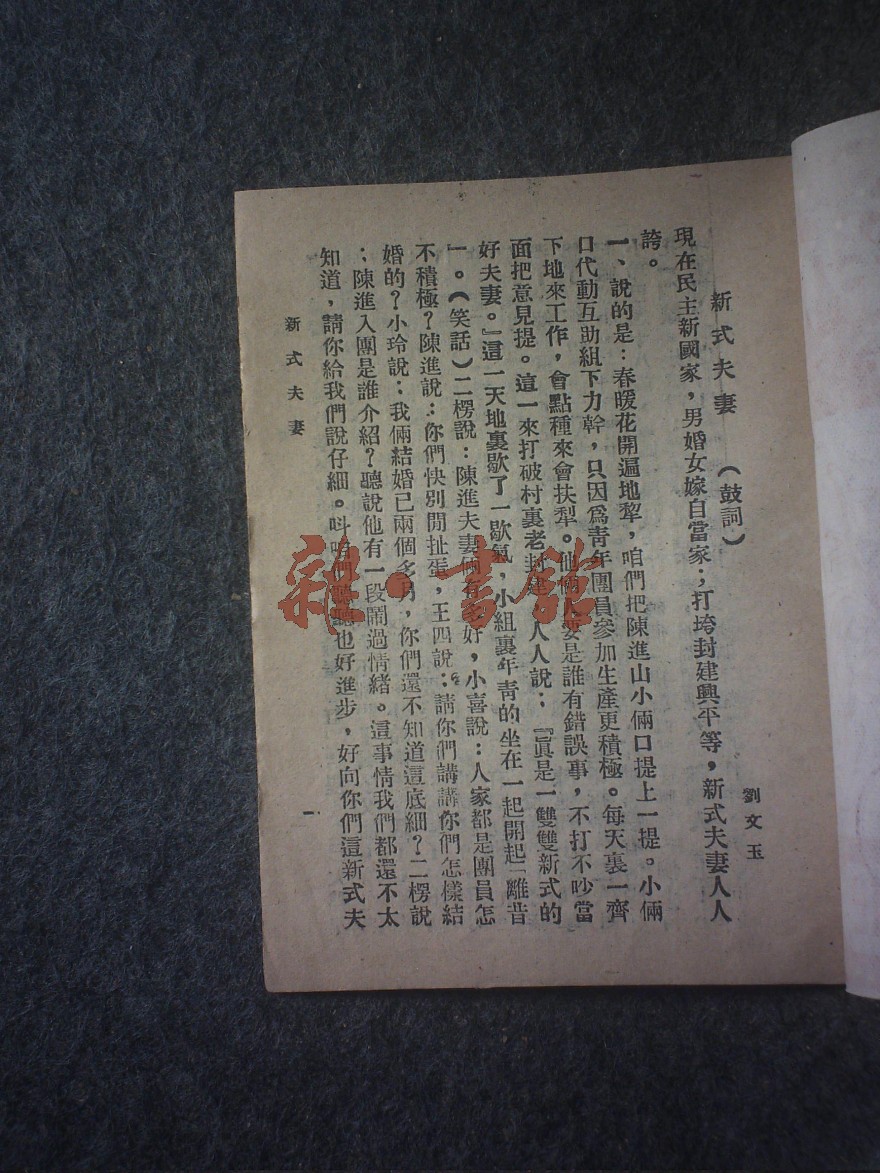 新式夫妻　（鼓詞）
劉文玉
現在民主新國家，男婚女嫁自當家；打垮封建興平等，新式夫妻人人
誇。
一、說的是：春暖花開遍地犂，咱們把陳進山小倆口提上一提。小倆
口代動互助組下力幹，只因爲靑年團員參加生產更積極。每天裏一齊
下地來工作，會點種來會扶犁。他倆要是誰有錯誤事，不打不吵當
面把意見提。這一來打破村裏老封建，人人說：『眞是一雙雙新式的
好夫妻。』這一天地裏歇了一歇氣，小組裏年靑的坐在一起開起「離音
一。（笑話）二楞說：陳進夫妻倆有多好，小喜說：人家都是團員怎
不積極？陳進說：你們快別閒扯蛋，王四說：請你們講講你們怎樣結
婚的？小玲說：我倆結婚已兩個多月，你們還不知道這底細？二楞說
；陳進入團是誰介紹？聽說他有一段鬧過情緒。這事情我們都還不太
知道，請你給我們說仔細。呌咱們聽聽也好進步，好向你們這新式夫
新式夫妻
一
雜·書館